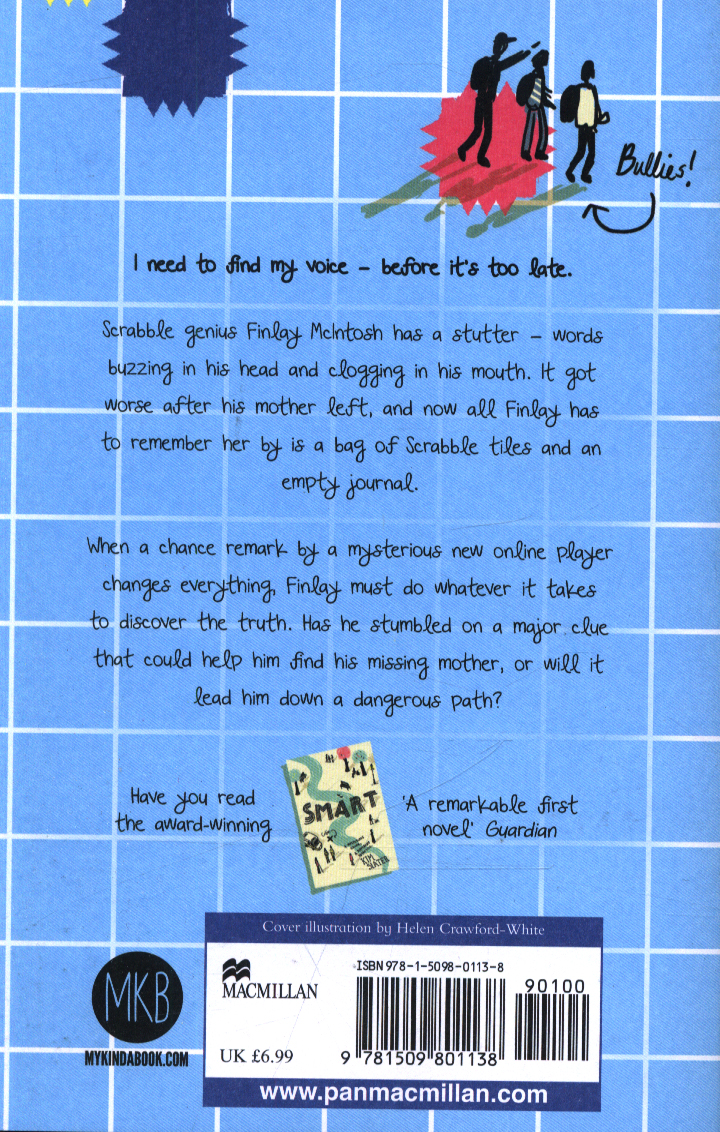 Bullies!
I need to find my voice – before it's too late.
Scrabble genius Finlay McIntosh has a stutter – words
buzzing in his head and clogging in his mouth. It got
worse after his mother left, and now all Finlay has
to remember her by is a bag of Scrabble tiles and an
empty journal.
When a chance remark by a mysterious new online player
changes everything, Finlay must do whatever it takes
to discover the truth. Has he stumbled on a major clue
that could help him find his missing mother, or will it
lead him down a dangerous path?
Have you read
the award-winning
SMART
KIM
SLATER
'A remarkable first
novel' Guardian
Cover illustration by Helen Crawford-White
MKB
MYKINDABOOK.COM
MACMILLAN
UK £6.99
ISBN 978-1-5098-0113-8
90100
9 781509 801138
www.panmacmillan.com